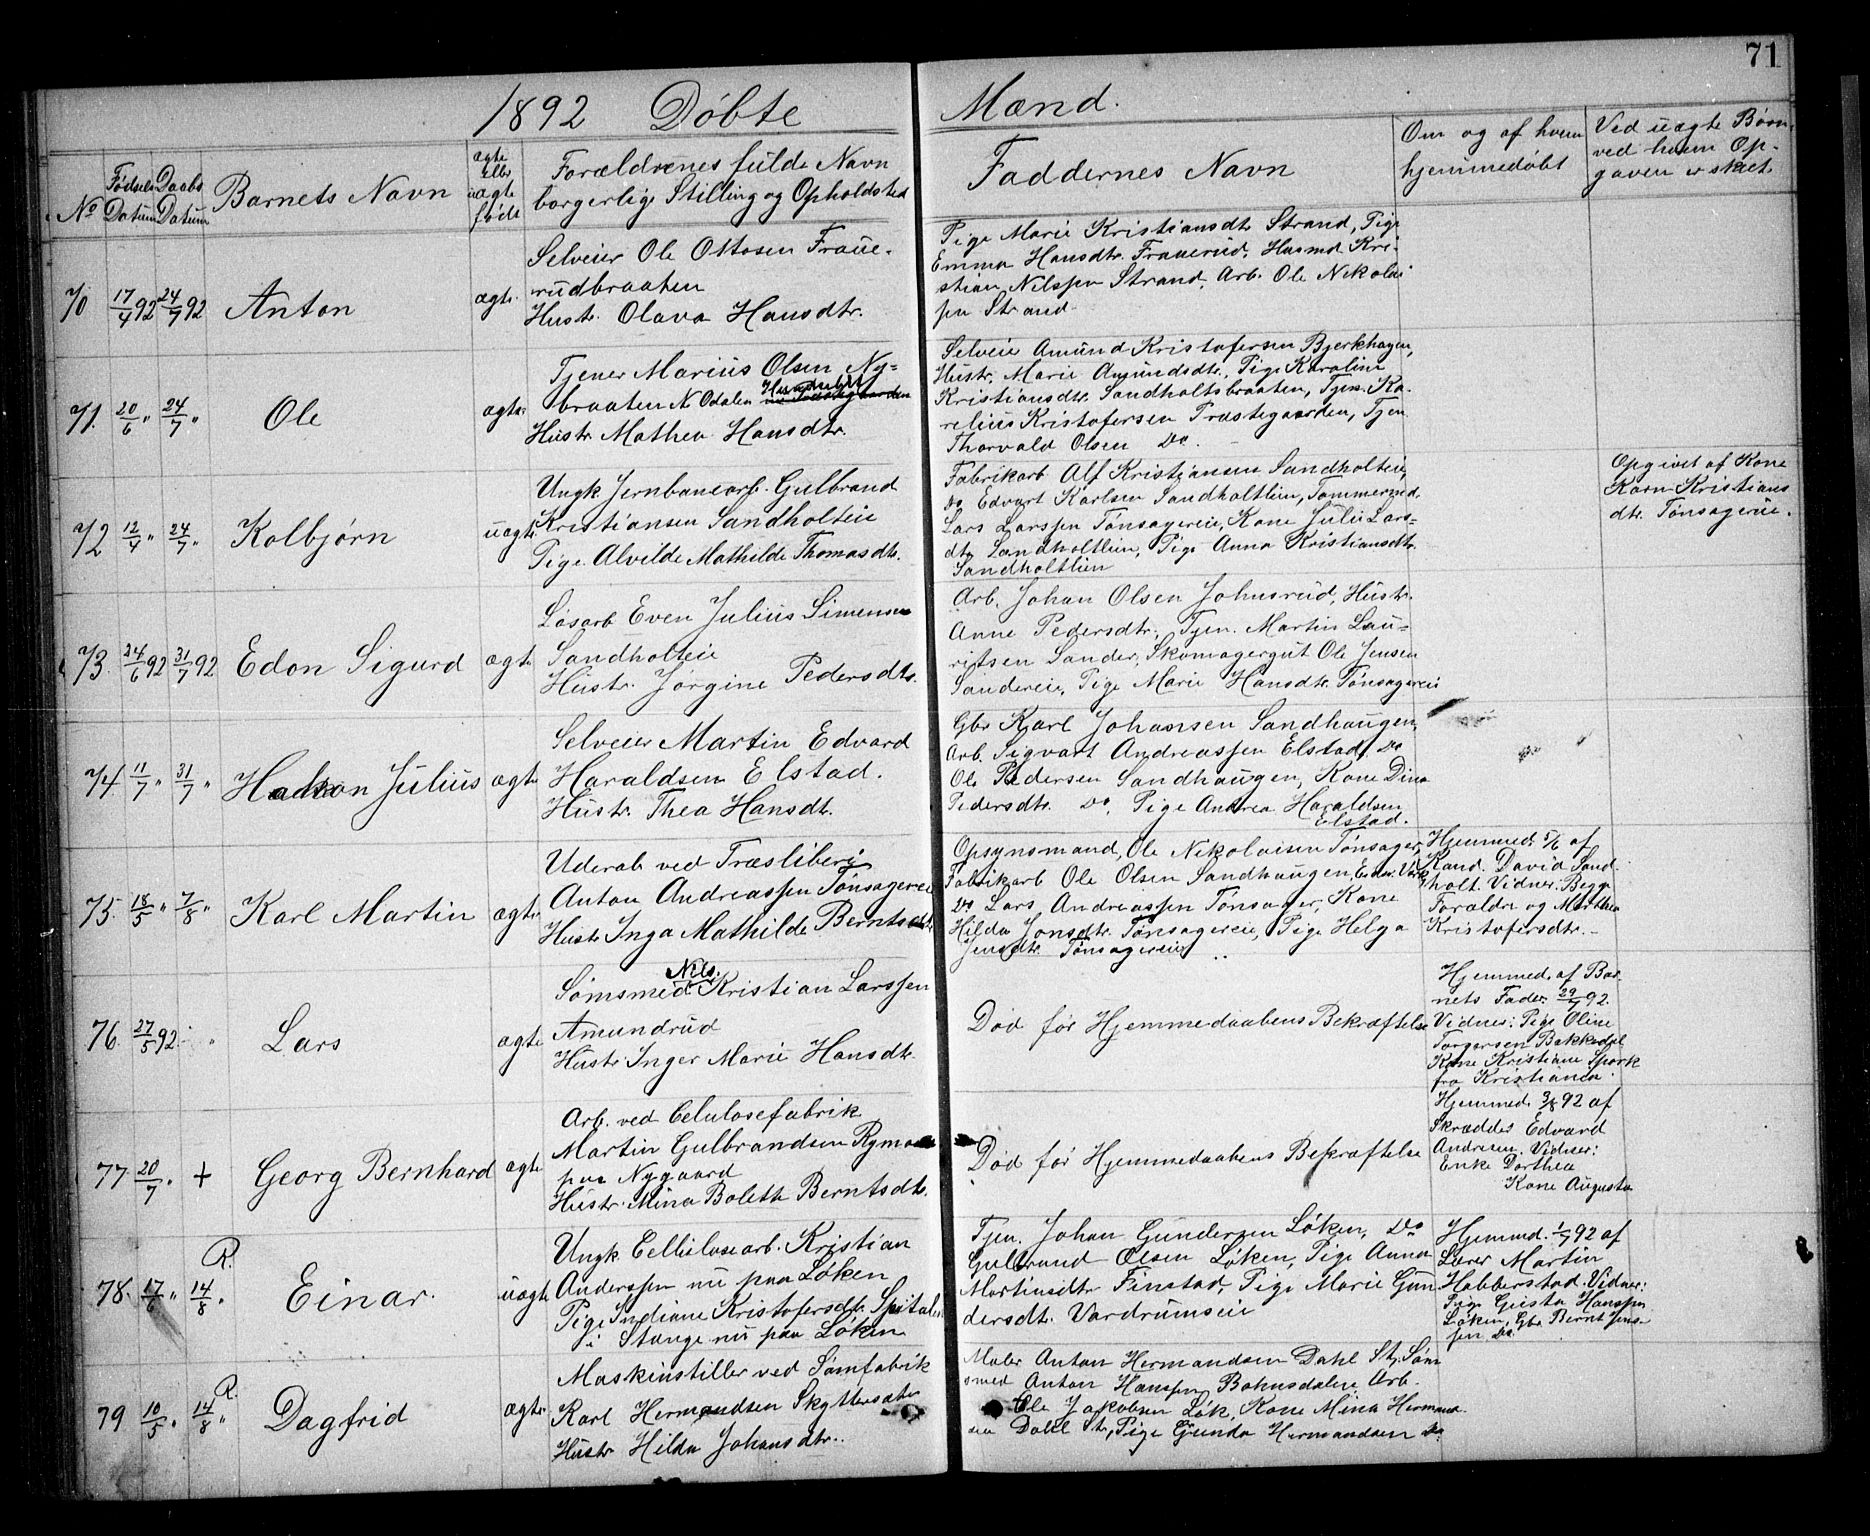 71
1892 Døbte Mænd.
No
Fødsels Datum
Daabs Datum
Barnets Navn
ægte eller uægte født
Forældrenes fulde Navn
borgerlige Stilling og Opholdsted
Faddernes Navn
Om og af hvem
hjemmedøbt
Ved uægte Børn,
ved hvem Op-
gaven er skeet.
70 17/4 92 24/7 92 Anton ægte.
Selveier Ole Ottosen Fraue-
rudbraaten
Hustr. Olava Hansdtr.
Pige Marie Kristiansdtr Strand, Pige
Emma Hansdtr. Frauerud, Husmd Kri-
stian Nilssen Strand, Arb. Ole Nikolai
sen Strand.
71. 20/6 " 24/7 " Ole ægte
Tjener Marius Olsen Ny-
braaten N Odalen
Hustr. Mathea Hansdtr.
Selveier Amund Kristofersen Bjerkhagen,
Hustr. Marie Amundsdtr., Pige Karoline
Kristiansdtr. Sandholtsbraaten, Tjen. Ka-
relius Kristofersen Præstegaarden, Tjen.
Thorvald Olsen Do.
72 12/4 " 24/7 " Kolbjørn uægte
Ungk. Jernbanearb. Gulbrand
Kristiansen Sandholteie
Pige. Alvilde Mathilde Thomasdtr.
Fabrikarb Alf Kristiansen Sandholteie,
Do Edvart Karlsen Sandholtlien, Tømmermd.
Lars Larssen Tønsagereie, Kone Julie Lars-
dtr Sandholtlien, Pige Anna Kristiansdtr.
Sandholtlien
Opgivet af Kone
Karn Kristians
dtr. Tønsagereie.
73. 24/6 92 31/7 92 Edon Sigurd ægte
Løsarb Even Julius Simensen
Sandholteie
Hustr. Jørgine Pedersdtr.
Arb. Johan Olsen Johnsrud, Hustr.
Anne Pedersdtr., Tjen. Martin Lau-
ritsen Sander, Skomagergut Ole Jensen
Sandereie, Pige Marie Hansdtr. Tønsagereie
74. 11/7 " 31/7 " Haakon Julius ægte
Selveier Martin Edvard
Haraldsen Elstad.
Hustr. Thea Hansdtr.
Gbr Karl Johansen Sandhaugen,
Arb. Sigvart Andreassen Elstad, Do
Ole Pedersen Sandhaugen, Kone Dina
Pedersdtr. Do, Pige Andrea Haraldsen
Elstad.
75. 18/5 " 7/8 " Karl Martin ægte
Uderab ved Træsliberi
Anton Andreassen Tønsagereie
Hustr Inga Mathilde Berntsdtr
Opsynsmand, Ole Nikolaisen Tønsager,
Fabrikarb Ole Olsen Sandhaugen,
Do Lars Andreassen Tønsager, Kone
Hilda Jonsdtr. Tønsagereie, Pige Helga
Jensdtr. Tønsagereie
Hjemmed. 5/6 af
Kand. David Sand-
holt. Vidner: Begge
Forældre og Marthea
Kristofersdtr. –
76. 27/5 92 Lars ægte
Nils.
Sømsmed Kristian Larssen
Amundrud
Hustr. Inger Marie Hansdtr.
Død før Hjemmedaabens Bekræftelse
Hjemmed. af Bar-
nets Fader 29/7 92.
Vidner: Pige Oline
Torgersen Bakkedal
Kone Kristiane Spørk
fra Kristiania.
77. 20/7 " + Georg Bernhard ægte
Arb. ved Celulosefabrik
Martin Gulbrandsen Rymoen
paa Nygaard
Hustr. Mina Bolette Berntsdtr.
Død før Hjemmedaabens Bekræftelse
Hjemmed. 3/8 92 af
Skrædder Edvard
Andresen. Vidner:
Enke Dorthea
Kone Augusta
78. 17/6 " 14/8 " R. Einar. uægte
Ungk. Celluloseearb. Kristian
Anderssen nu paa Løken
Pige Indiane Kristofersdtr. Spitalen
i Stange nu paa Løken
Tjen. Johan Gundersen Løken, Do
Gulbrand Olsen Løken, Pige Anna
Martinsdtr Finstad, Pige Marie Gun-
dersdtr. Vardrumseie
Hjemmed. 1/7 92 af
Lærer Martin
Habberstad. Vidner:
Pige Gusta Hanssen
Løken, Gbr Bernt Jens-
sen Do
79 10/5 " 14/8 " R. Dagfrid ægte
Maskinstiller ved Sømfabrik
Karl Hermandsen Skyttersæter
Hustr Hilda Johansdtr.
Maler Anton Hermandsen Dahl St, Søm
smed Anton Hanssen Bohnsdalen Arb.
Ole Jakobsen Løk, Kone Mina Herman-
sen Dahl St, Pige Gunda Hermandsen Do